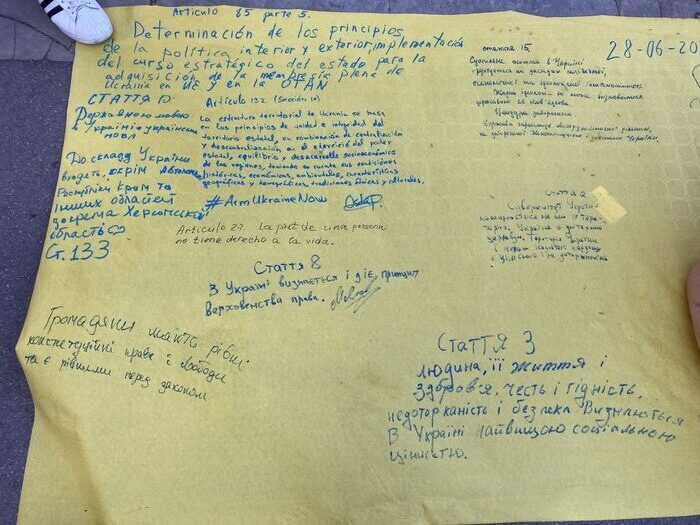 Articulo 85 parte 5.
Determinación de los principios
de la política interior y exterior, implementación
del curso estratégico del estado para la
adquisición de la membresía plena de
Ucrania en UE y en la OTAN
СТАТТЯ 10
Державною мовою
в Україні є українська
мова
До складу України
входять, окрім Автономн
Республіки Крим та
інших областей
зокрема Херсонської
область
Ст. 133
Artículo 132 (Sección IX)
La estructura territorial de Ucrania se basa
en los principios de unidad e integridad del
territorio estatal, un combinación de centralización
y descentralización en el ejercicio del poder
estatal, equilibrio y desarrollo socioeconómico
de las regiones, teniendo en cuenta sus condiciones
históricas, económicas, ambientales, características
geográficas y demográficas, tradiciones étnicas y culturales.
#ArmUkraineNow
Articulo 27. La
de una persona
no tiene derecho a la vida.
Стаття 8
В Україні визнається і діє принцип
верховенства права.
Громадяни мають рівні
конституційні права і свободи
та є рівними перед законом
стаття 15
28-06-20
Суспільне життя в Україні
ґрунтується на засадах політичної,
економічної та ідеологічної багатоманітності
Жодна ідеологія не може визнаватися
державою як обов'язкова
Цензура заборонена
Держава гарантує
діяльності,
не забороненої Конституцією і законами України.
Стаття 2
Суверенітет України
поширюється на всю її тери-
торію. Україна є унітарною
державою. Територія України
в межах існуючого кордону
є цілісною і недоторканною
СТАТТЯ 3
Людина, її життя і
здоров'я, честь і гідність,
недоторканість і безпека визнаються
в Україні найвищою соціальною
цінністю.